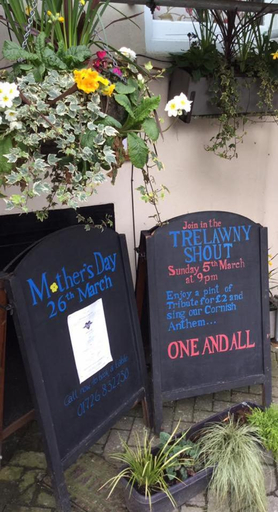 Mother's Day
26th March
01726 832750
Join in the
TRELAWNY
SHOUT
Sunday 5th March
at 9pm
Enjoy a pint of
Tribute for £2 and
sing our Cornish
Anthem...
ONE AND ALL